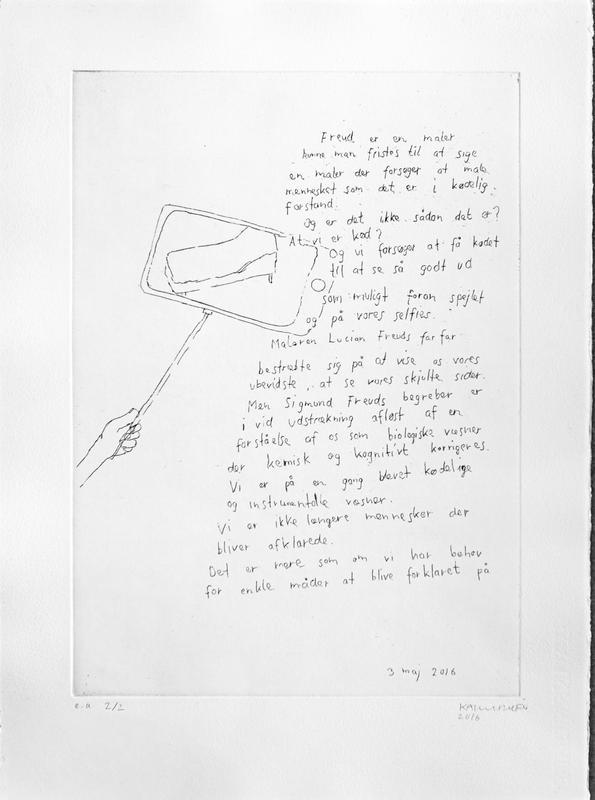 Freud er en maler
kunne man fristes til at sige
en maler der forsøger at male
mennesket som det er i kødelig
forstand.
Og er det ikke sådan det er?
At vi er kød?
Og vi forsøger at få kødet
til at se så godt ud
som muligt foran spejlet
og på vores selfies.
Maleren Lucian Freuds farfar
bestræbte sig på at vise os vores
ubevidste, at se vores skjulte sider.
Men Sigmund Freuds begreber er
i vid udstrækning afløst af en
forståelse af os som biologiske væsner
der kemisk og kognitivt korrigeres.
Vi er på en gang blevet kødelige
og instrumentelle væsner.
Vi er ikke længere mennesker der
bliver afklarede.
Det er mere som om vi har behov
for enkle måder at blive forklaret på
3 maj 2016
e.a 2/2
2016